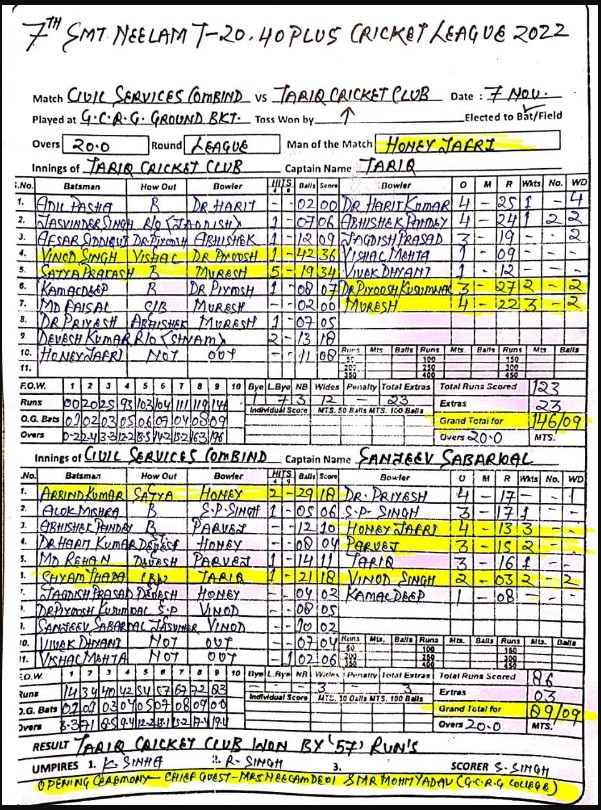 7TH SMT. NEELAM T-20. 40 PLUS CRICKET LEAGUE 2022
Match CIVIL SERVICES COMBIND VS TARIQ CRICKET CLUB Date : 7 NOV.
Played at G.C.R.G. GROUND BKT. Toss Won by ↑ Elected to Bat/Field
Overs 20.0 Round LEAGUE Man of the Match HONEY JAFRI
Innings of TARIQ CRICKET CLUB Captain Name TARIQ
S.No. Batsman How Out Bowler HITS 4 6 Balls Score Bowler O M R Wkts No. WD
1. ADIL PASHA B DR HARIT - - 02 00 DR HARIT KUMAR 4 - 25 1 - 4
2. JASVINDER SINGH R/O (JAGDISH) 1 - 07 06 ABHISHEK PANDEY 4 - 24 1 2 2
3. AFSAR SIDDIQUI DR PIYOSH ABHISHEK 1 - 12 09 JAGDISH PRASAD 3 - 19 - - 2
4. VINOD SINGH VISHAL DR PIYOOSH - 1 - 42 36 VISHAL MEHTA 1 09 - - -
5. SATYA PRAKASH B MURESH 5 - 19 34 VIVEK DHYANI 1 - 12 - - -
6. KAMALDEEP B DR PIYUSH 1 - 08 07 DR PIYOOSH KUSUMWAL 3 - 27 2 - 2
7. MD FAISAL C/B MURESH - - 02 00 MURESH 4 - 22 3 - 2
8. DR PRIYESH ABHISHEK MURESH 1 - 07 05
9 DEVESH KUMAR R/O (SHYAM) 2 - 13 18
10. HONEY JAFRI NOT OUT - - 11 08 Runs Mts. Balls Runs Mts. Balls
11. 50 100 150 200 250 300 350 400 450
F.O.W. 1 2 3 4 5 6 7 8 9 10 Bye L.Bye NB Wides Penalty Total Extras Total Runs Scored 123
Runs 00 20 25 93 103 104 111 119 146 1 7 3 12 - 23 Extras 23
O.G. Bats 01 02 03 05 06 04 08 09 Individual Score MTS. 50 Balls MTS. 100 Balls Grand Total for 146/09
Overs Overs 20.0 MTS.
Innings of CIVIL SERVICES COMBIND Captain Name SANJEEV SABARWAL
.No. Batsman How Out Bowler HITS 4 6 Balls Score Bowler O M R Wkts No. WD
1. ARBIND KUMAR SATYA HONEY 2 - 29 18 DR. PRIYESH 4 - 17 - - 1
2. ALOK MISHRA B S.P. SINGH 1 - 05 06 S.P. SINGH 3 - 17 1 - -
3. ABHISHEK PANDEY B PARVEJ - - 12 10 HONEY JAFRI 4 - 13 3 - -
DR HARIT KUMAR DEVESH HONEY - - 08 04 PARVEJ 3 - 15 2 - -
MD REHAN DEVESH PARVEJ 1 - 14 11 TARIQ 3 - 16 1 - -
SHYAM THAPA TARIQ 1 - 21 18 VINOD SINGH 2 - 03 2 - 2
JAGDISH PRASAD DEVESH HONEY - - 04 02 KAMALDEEP 1 - 08 - - -
DR PIYOOSH KUSUMWAL S.P VINOD - - 08 05
SANJEEV SABARWAL JASUNDER VINOD - - 10 02
10. VIVEK DHYANI NOT OUT - - 07 04 Runs Mts. Balls Runs Mts. Balls
11. VISHAL MEHTA NOT OUT - 1 02 06 50 100 150 200 250 300 350 400 450
F.O.W. 1 2 3 4 5 6 7 8 9 10 Bye L.Bye NB Wides Penalty Total Extras Total Runs Scored 86
Runs 14 34 40 42 54 57 67 72 83 - - - 3 3 Extras 03
O.G. Bats 02 01 03 04 05 07 08 09 Individual Score MTS. 50 Balls MTS. 100 Balls Grand Total for 89/09
Overs Overs 20.0 MTS.
RESULT TARIQ CRICKET CLUB WON BY '57' RUN'S
UMPIRES 1. K. SINHA 2. R. SINGH 3. SCORER S. SINGH
OPENING CEREMONY - CHIEF GUEST - MRS NEELAM DEVI & MR MOHIT YADAV (G.C.R.G COLLEGE)